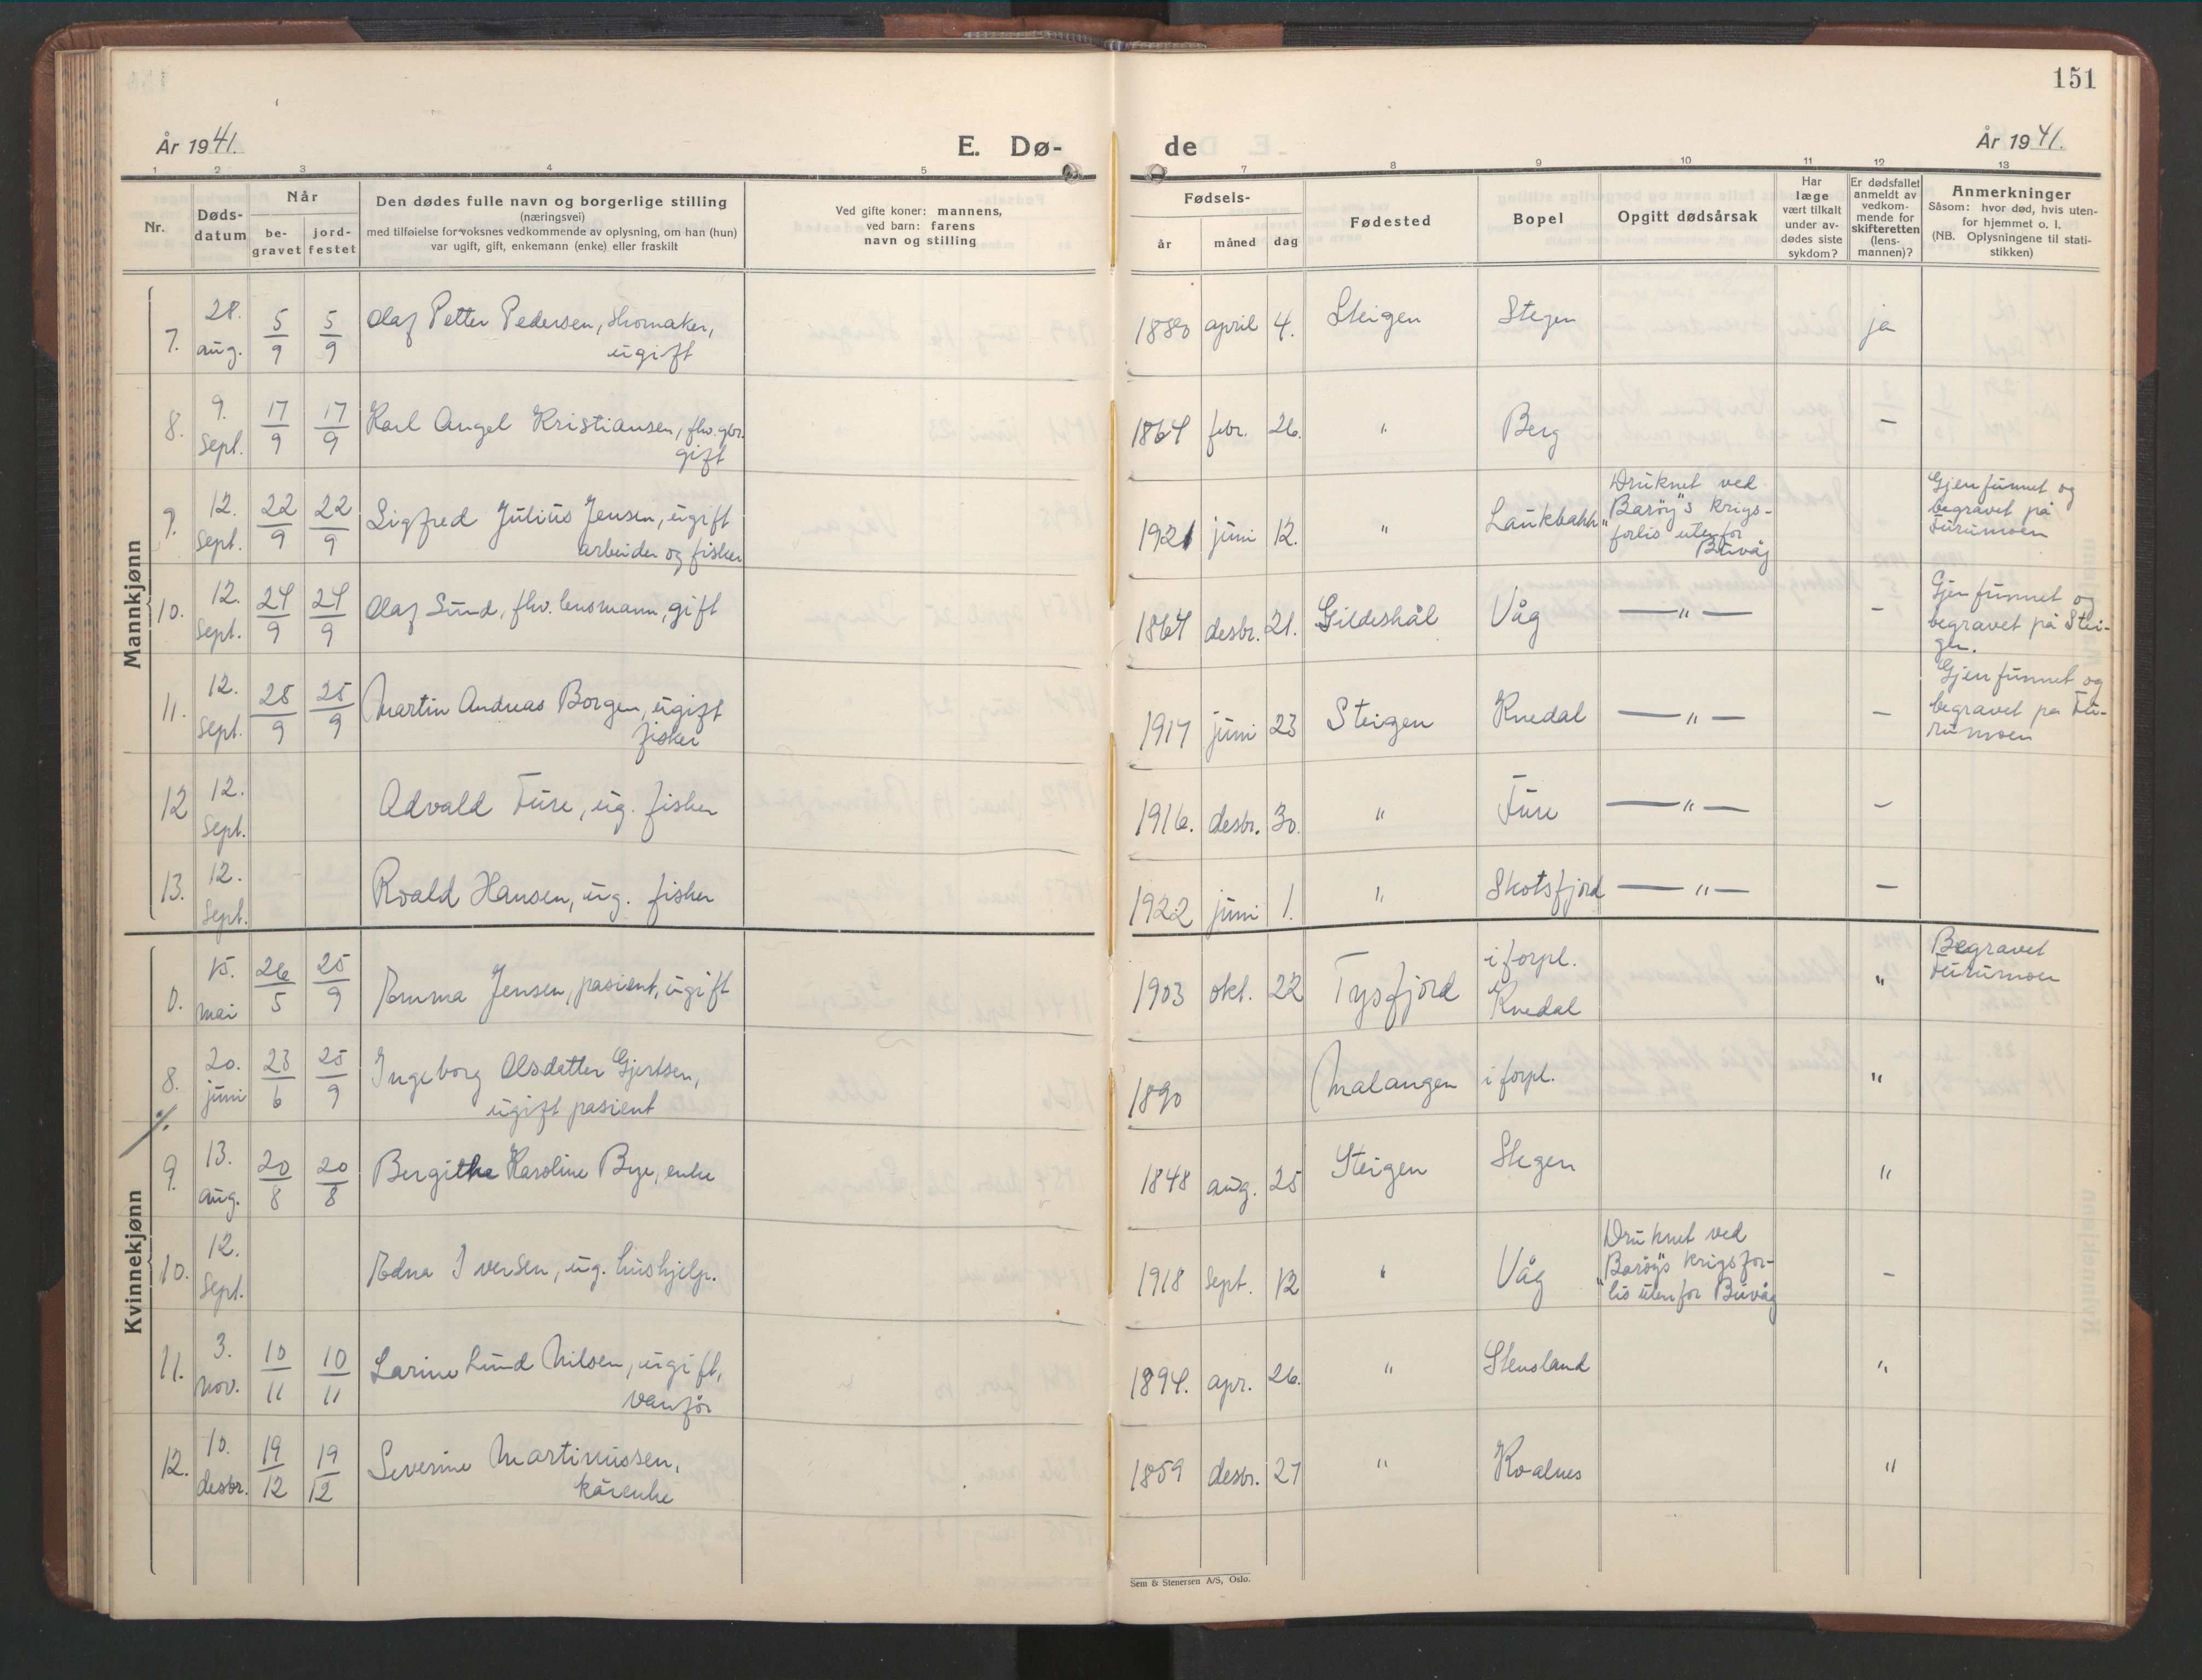 151
År 1941.
E. Dø-
de
År 1941.
1 2 3 4 5 6 7 8 9 10 11 12 13
Nr.
Døds-
datum
Når
be-
gravet
jord-
festet
Den dødes fulle navn og borgerlige stilling
(næringsvei)
med tilføielse for voksnes vedkommende av oplysning, om han (hun)
var ugift, gift, enkemann (enke) eller fraskilt
Ved gifte koner: mannens,
ved barn: farens
navn og stilling
Fødsels-
år måned dag
Fødested
Bopel
Opgitt dødsårsak
Har
læge
vært tilkalt
under av-
dødes siste
sykdom?
Er dødsfallet
anmeldt av
vedkom-
mende for
skifteretten
(lens-
mannen)?
Anmerkninger
Såsom: hvor død, hvis uten-
for hjemmet o. l.
(NB. Oplysningene til stati-
stikken)
Mannkjønn
7. 28. aug. 5/9 5/9 Olaf Petter Pedersen, skomaker,
ugift
1880 april 4. Steigen Stegen ja
8. 9. Sept. 17/9 17/9 Karl Angel Kristiansen, fhv. gbr.
gift
1864 febr. 26. " Berg –
9. 12. Sept. 22/9 22/9 Sigfred Julius Jensen, ugift
arbeider og fisker
1921 juni 12. " Laukbakk
Druknet ved
"Barøy"s krigs-
forlis utenfor
Buvåg
Gjenfunnet og
begravet på
Furumoen
10. 12. Sept. 24/9 24/9 Olaf Sund, fhv. lensmann, gift
1864 desbr. 21. Gildeskål Våg — " — –
Gjenfunnet og
begravet på Stei-
gen.
11. 12. Sept. 25/9 25/9 Martin Andreas Borgen, ugift
fisker
1917 juni 23 Steigen Knedal — " — –
Gjenfunnet og
begravet på Fu-
rumoen
12 12. Sept. Advald Fure, ug. fisker
1916. desbr. 30. " Fure — " — –
13. 12. Sept. Roald Hansen, ug. fisker
1922 juni 1. " Skotsfjord — " — –
Kvinnekjønn
0. 15. mai 26/5 25/9 Emma Jensen, pasient, ugift
1903 okt. 22 Tysfjord i forpl.
Knedal "
Begravet
Furumoen
8. 20. juni 23/6 25/9 Ingeborg Olsdatter Gjertsen,
ugift pasient
1890 Malangen i forpl. "
./.
9. 13. aug. 20/8 20/8 Bergithe Karoline Bye, enke
1848 aug. 25 Steigen Stegen "
10. 12. Sept. Edna Iversen, ug. hushjelp.
1918 Sept. 12 " Våg
Druknet ved
"Barøy"s krigsfor-
lis utenfor Buvåg
–
11. 3. nov. 10/11 10/11 Larine Lund Nilsen, ugift,
vanfør
1894. apr. 26. " Stensland "
12. 10. desbr. 19/12 19/12 Severine Martinussen,
kårenke
1859 desbr. 27 " Koalnes "
Sem & Stenersen A/S, Oslo.